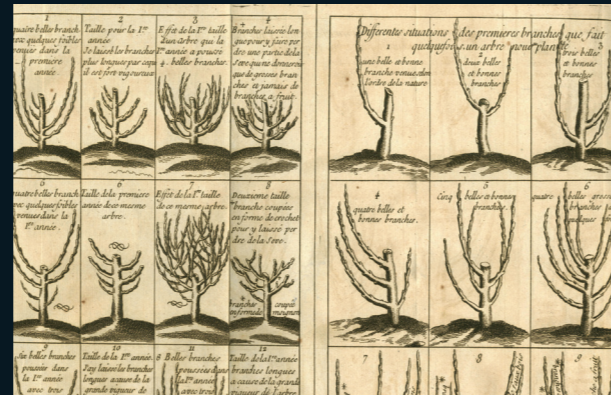 1
quatre belles branch
avec quelques foibles
venues dans la
premiere
année.
2
Taille pour la 1.re
année
Je laisse les branches
plus longues par ce qu
il est fort vigoureux
3
Effet de la 1.re taille
d'un arbre que la
1.re année a poussé
4. belles branches.
4
Branches laissée lon
gue pour y faire per
dre une partie de la
Seve qui ne donneroit
que de grosses bran
ches et jamais de
branches a fruit.
5
quatre belles branch
avec quelques foibles
venues dans la
1.re année.
6
Taille de la premiere
année de ce mesme
arbre.
7
Effet de la 1.re taille
de ce mesme arbre.
8
Deuxieme taille
branche coupée
en forme de crochet
pour y laisse per
dre de la Seve.
branches coupée
en forme de moignon
9
Six belles branches
poussées dans
la 1.re année
avec trois
10
Taille de la 1.re année.
J'ay laisse les branches
longues a cause de la
grande vigueur de
11
8 Belles branches
poussées dans
la 1.re année
avec trois
12
Taille de la 1.re année
branches longues
a cause de la grande
vigueur de l'arbre
Differentes situations des premieres branches que fait
quelquefois un arbre nouv plante
1
une belle et bonne
branche venue dans
l'ordre de la nature
2
deux belles
et bonnes
branches
trois belles
et bonnes
branches
3
quatre belles et
bonnes branches.
5
Cinq belles et bonnes
branches.
6
quatre belles grosses
branches
quelques
7
8
9